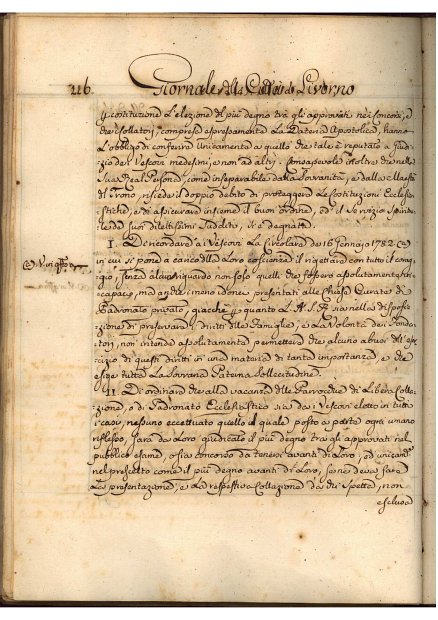 216. Giornale della Città di Livorno
costituzione l'elezione del più degno tra gli approvati nei Concorsi, e
che i Collatori, compresa espressamente la Dateria Apostolica, hanno
l'obbligo di conferire unicamente a quello che tale è reputato a giudi-
zio dei Vescovi medesimi, e non ad altri. Consapevole inoltre che nella
Sua Real Persona, come inseparabile dalla Sovranità, e dalla Maestà
del Trono, risiede il doppio debito di proteggere le Costituzioni Ecclesia-
stiche, e di assicurare insieme il buon ordine, ed il Servizio Spiritu-
ale dei suoi dilettissimi Sudditi, si è degnata.
I. Di ricordare ai Vescovi la Circolare de' 16 Gennajo 1782
in cui si pone a carico della loro coscienza il rigettare con tutto il corag-
gio, senza alcun riguardo non solo quelli che fossero assolutamente
incapaci, ma anche i meno idonei presentati alle Chiese Curate di
Padronato privato, giacchè quanto S. A. R. sia nella disposi-
zione di preservare i diritti delle Famiglie, e la Volontà dei Fonda-
tori, non intende assolutamente permettere che alcuno abusi dell'eser-
cizio di questi diritti in una materia di tanta importanza, e che
esige tutta la Sovrana Paterna Sollecitudine.
II. Di ordinare che alla vacanza delle Parrocchie di Libera Colla-
zione, o di Padronato Ecclesiastico sia dai Vescovi eletto in tutti
i casi, nessuno eccettuato quello il quale posto a parte ogni umano
riflesso, sarà da loro giudicato il più degno tra gli approvati nel
pubblico esame, o sia concorso da tenersi avanti di loro, ed unicamente
nel prescelto come il più degno avanti di loro, se ne deva fare
la presentazione, e la respettiva Collazione da chi spetta, non
esclusa